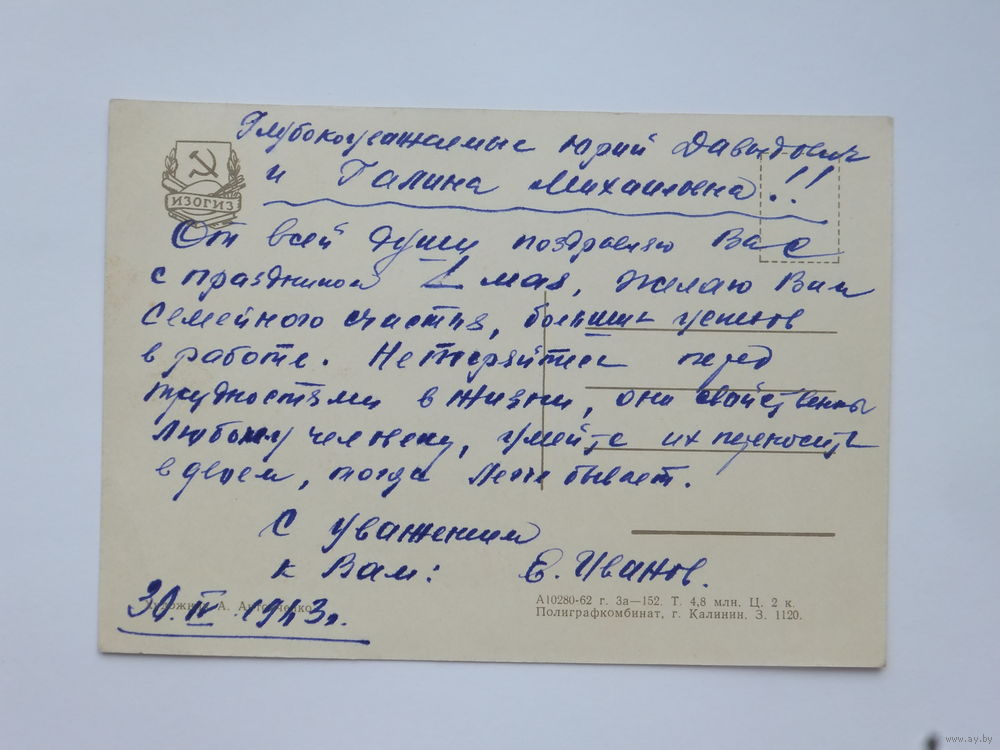 Глубокоуважаемые Юрий Давыдович
и Галина Михайловна!!
ИЗОГИЗ
От всей души поздравляю Вас
с праздником 1 мая, желаю Вам
семейного счастья, больших успехов
в работе. Не теряйтесь перед
трудностями в жизни, они свойственны
любому человеку, умейте их переносить
вдвоем, тогда легче бывает.
С уважением
к Вам: Е. Иванов.
Художник А.
30.IV.1963г.
А10280-62 г. За—152. Т. 4,8 млн. Ц. 2 к.
Полиграфкомбинат, г. Калинин. З. 1120.
www.ay.by